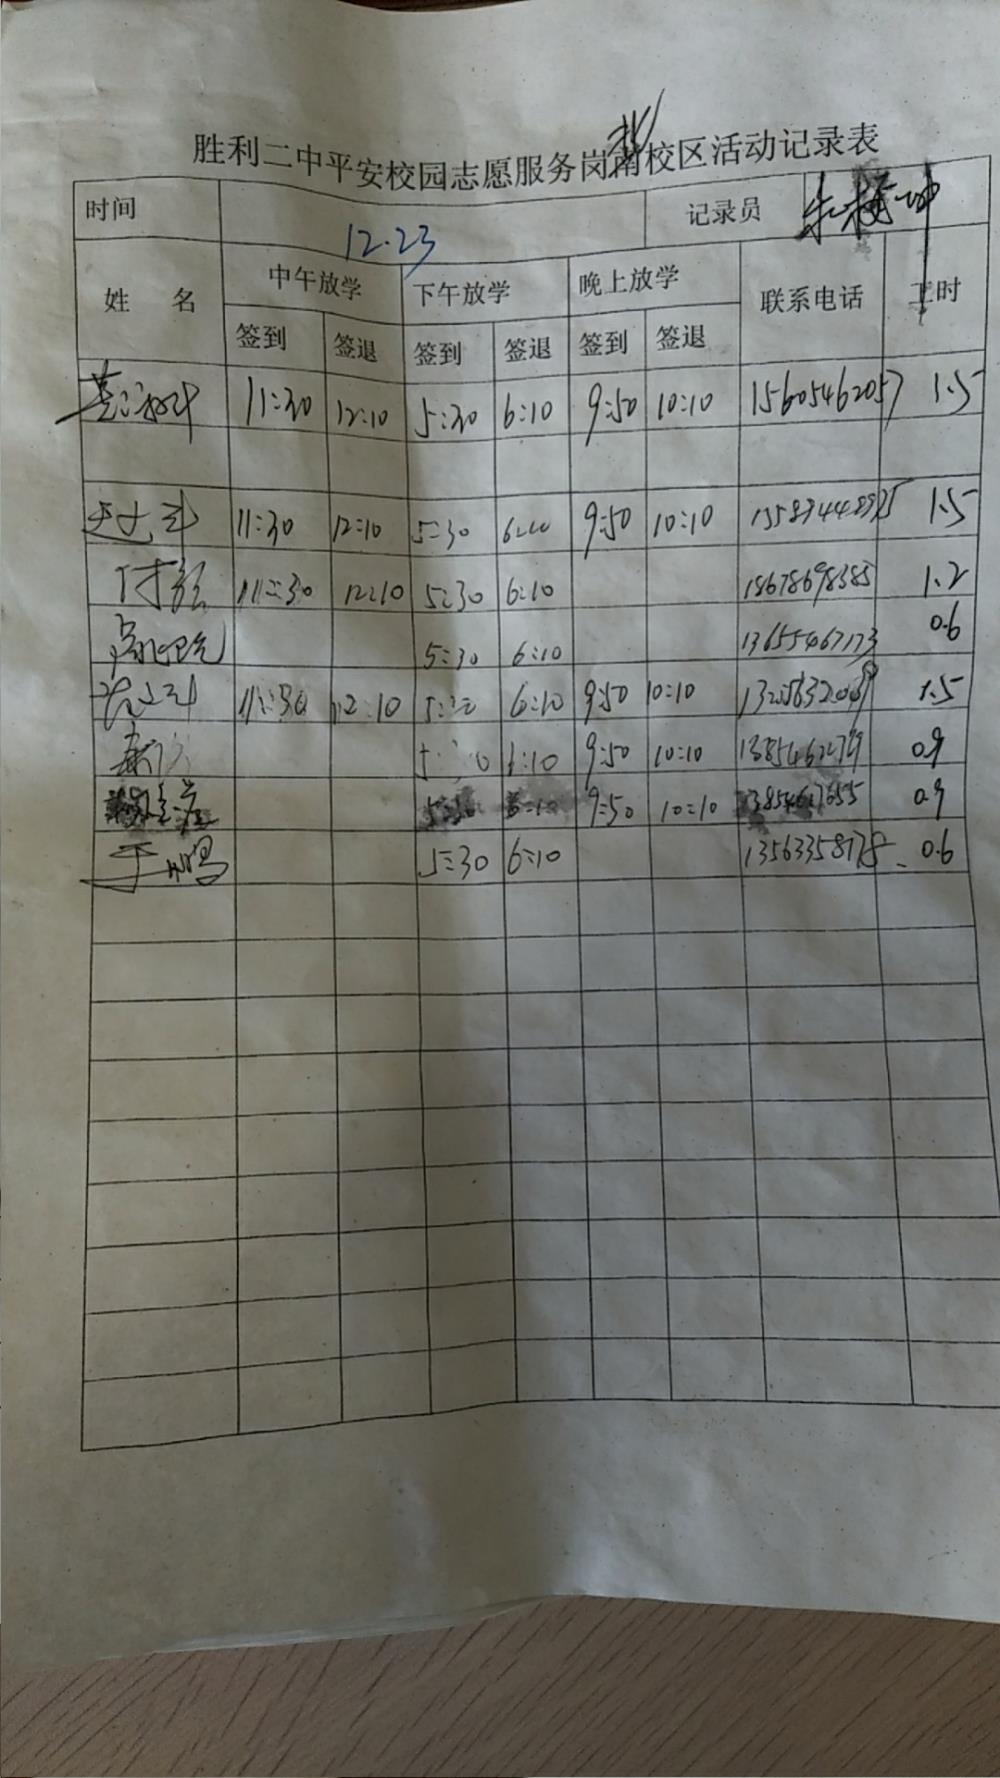 胜利二中平安校园志愿服务岗南校区活动记录表
时间 12.23 记录员
姓 名 中午放学 下午放学 晚上放学 联系电话 工时
签到 签退 签到 签退 签到 签退
11:30 12:10 5:30 6:10 9:50 10:10 15605462057 1.5
11:30 12:10 5:30 6:10 9:50 10:10 1.5
11:30 12:10 5:30 6:10 18678698385 1.2
5:30 6:10 13655467173 0.6
11:30 12:10 5:30 6:10 9:50 10:10 1.5
5:30 6:10 9:50 10:10 0.9
5:30 6:10 9:50 10:10 0.9
于鹏 5:30 6:10 13563358178 0.6